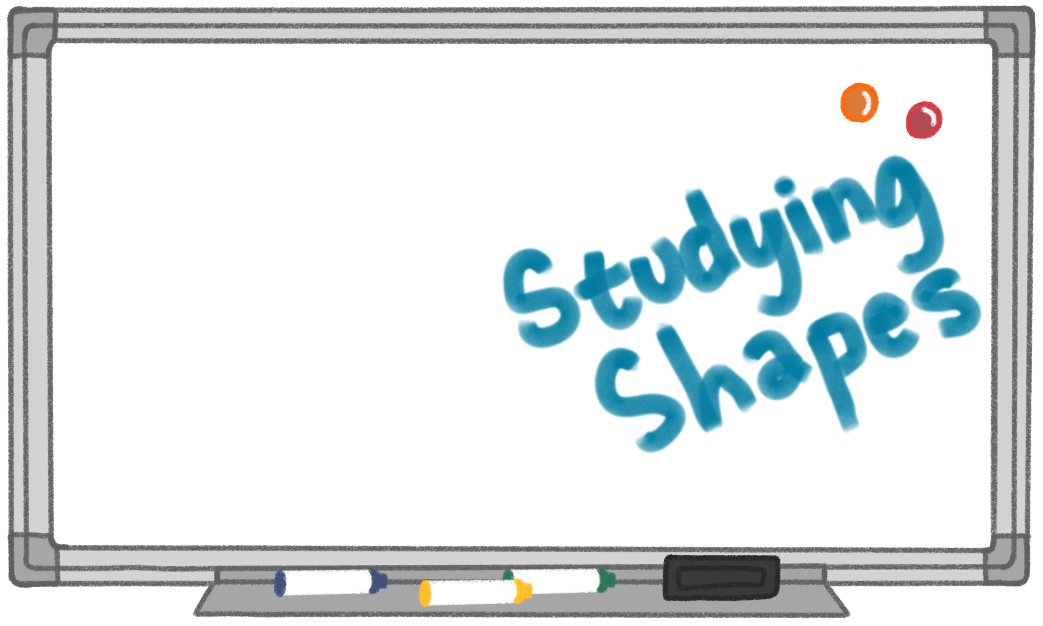 Studying
Shapes